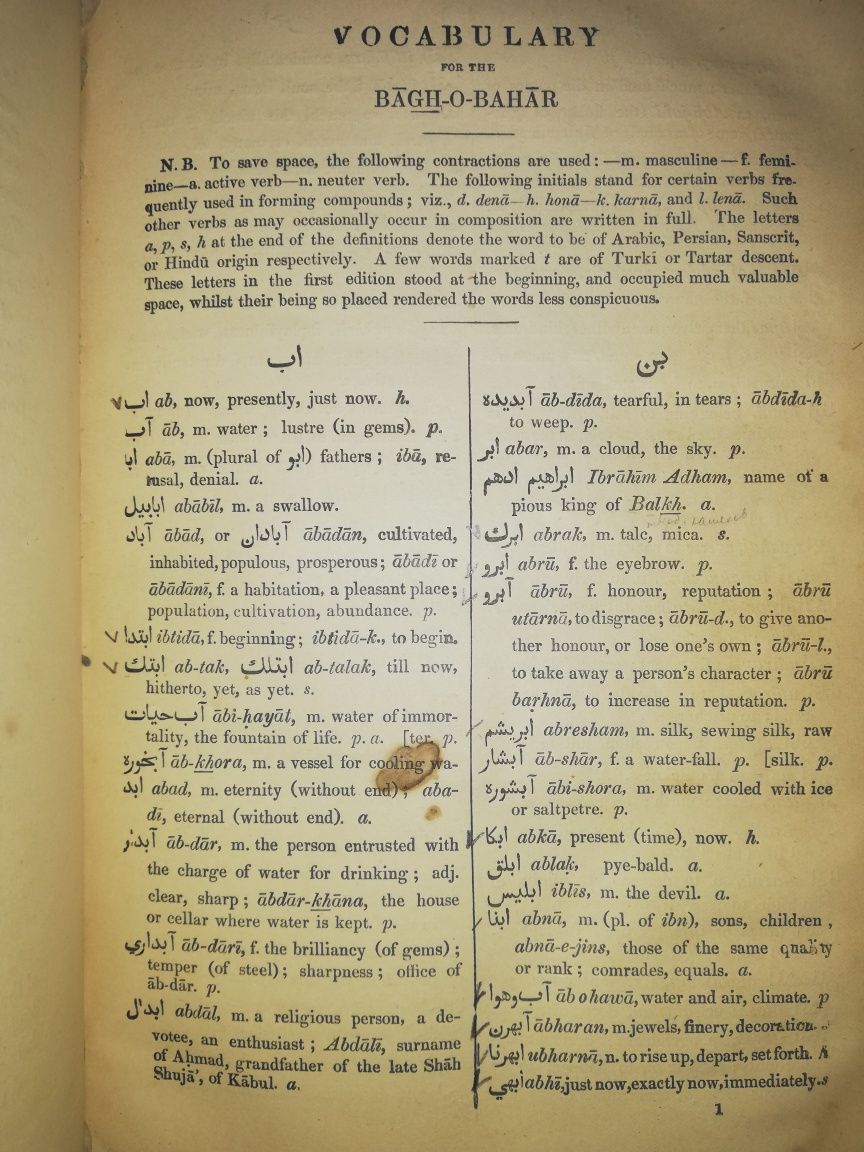 VOCABULARY
FOR THE
BĀGH-O-BAHĀR
N. B. To save space, the following contractions are used:—m. masculine—f. femi-
nine—a. active verb—n. neuter verb. The following initials stand for certain verbs fre-
quently used in forming compounds; viz., d. denā—h. honā—k. karnā, and l. lenā. Such
other verbs as may occasionally occur in composition are written in full. The letters
a, p, s, h at the end of the definitions denote the word to be of Arabic, Persian, Sanscrit,
or Hindū origin respectively. A few words marked t are of Turkī or Tartar descent.
These letters in the first edition stood at the beginning, and occupied much valuable
space, whilst their being so placed rendered the words less conspicuous.
اب
اب ab, now, presently, just now. h.
آب āb, m. water; lustre (in gems). p.
ابا abā, m. (plural of ابو) fathers; ibā, re-
fusal, denial. a.
ابابيل abābīl, m. a swallow.
آباد ābād, or آبادان ābādān, cultivated,
inhabited, populous, prosperous; ābādī or
ābādānī, f. a habitation, a pleasant place;
population, cultivation, abundance. p.
ابتدا ibtidā, f. beginning; ibtidā-k., to begin.
ابتك ab-tak, ابتلك ab-talak, till now,
hitherto, yet, as yet. s.
آب حيات ābi-ḥayāt, m. water of immor-
tality, the fountain of life. p. a. [ter. p.
آبخوره āb-khora, m. a vessel for cooling wa-
ابد abad, m. eternity (without end); aba-
dī, eternal (without end). a.
آبدار āb-dār, m. the person entrusted with
the charge of water for drinking; adj.
clear, sharp; ābdār-khāna, the house
or cellar where water is kept. p.
آبداري āb-dārī, f. the brilliancy (of gems);
temper (of steel); sharpness; office of
āb-dār. p.
ابدال abdāl, m. a religious person, a de-
votee, an enthusiast; Abdālī, surname
of Aḥmad, grandfather of the late Shāh
Shujā', of Kābul. a.
بن
آبديده āb-dīda, tearful, in tears; ābdīda-h
to weep. p.
ابر abar, m. a cloud, the sky. p.
ابراهيم ادهم Ibrāhīm Adham, name of a
pious king of Balkh. a.
ابرك abrak, m. talc, mica. s.
ابرو abrū, f. the eyebrow. p.
آبرو ābrū, f. honour, reputation; ābrū
utārnā, to disgrace; ābrū-d., to give ano-
ther honour, or lose one's own; ābrū-l.,
to take away a person's character; ābrū
baṛhnā, to increase in reputation. p.
ابريشم abresham, m. silk, sewing silk, raw
آبشار āb-shār, f. a water-fall. p. [silk. p.
آبشوره ābi-shora, m. water cooled with ice
or saltpetre. p.
ابكا abkā, present (time), now. h.
ابلق ablaḳ, pye-bald. a.
ابليس iblīs, m. the devil. a.
ابنا abnā, m. (pl. of ibn), sons, children,
abnā-e-jins, those of the same quality
or rank; comrades, equals. a.
آب وهوا āb o hawā, water and air, climate. p
آبهرن ābharan, m. jewels, finery, decoration. s
ابهرنا ubharnā, n. to rise up, depart, set forth. h
ابهي abhī, just now, exactly now, immediately. s
1